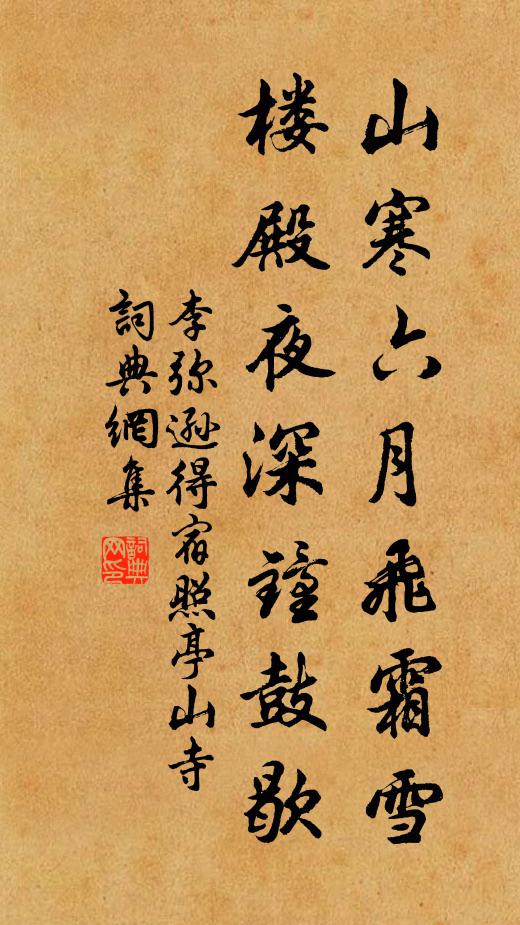 山寒六月飛霜雪
楼殿夜深鐘鼓歇
李弥遜得宿照亭山寺
詞典網集
詞典网印